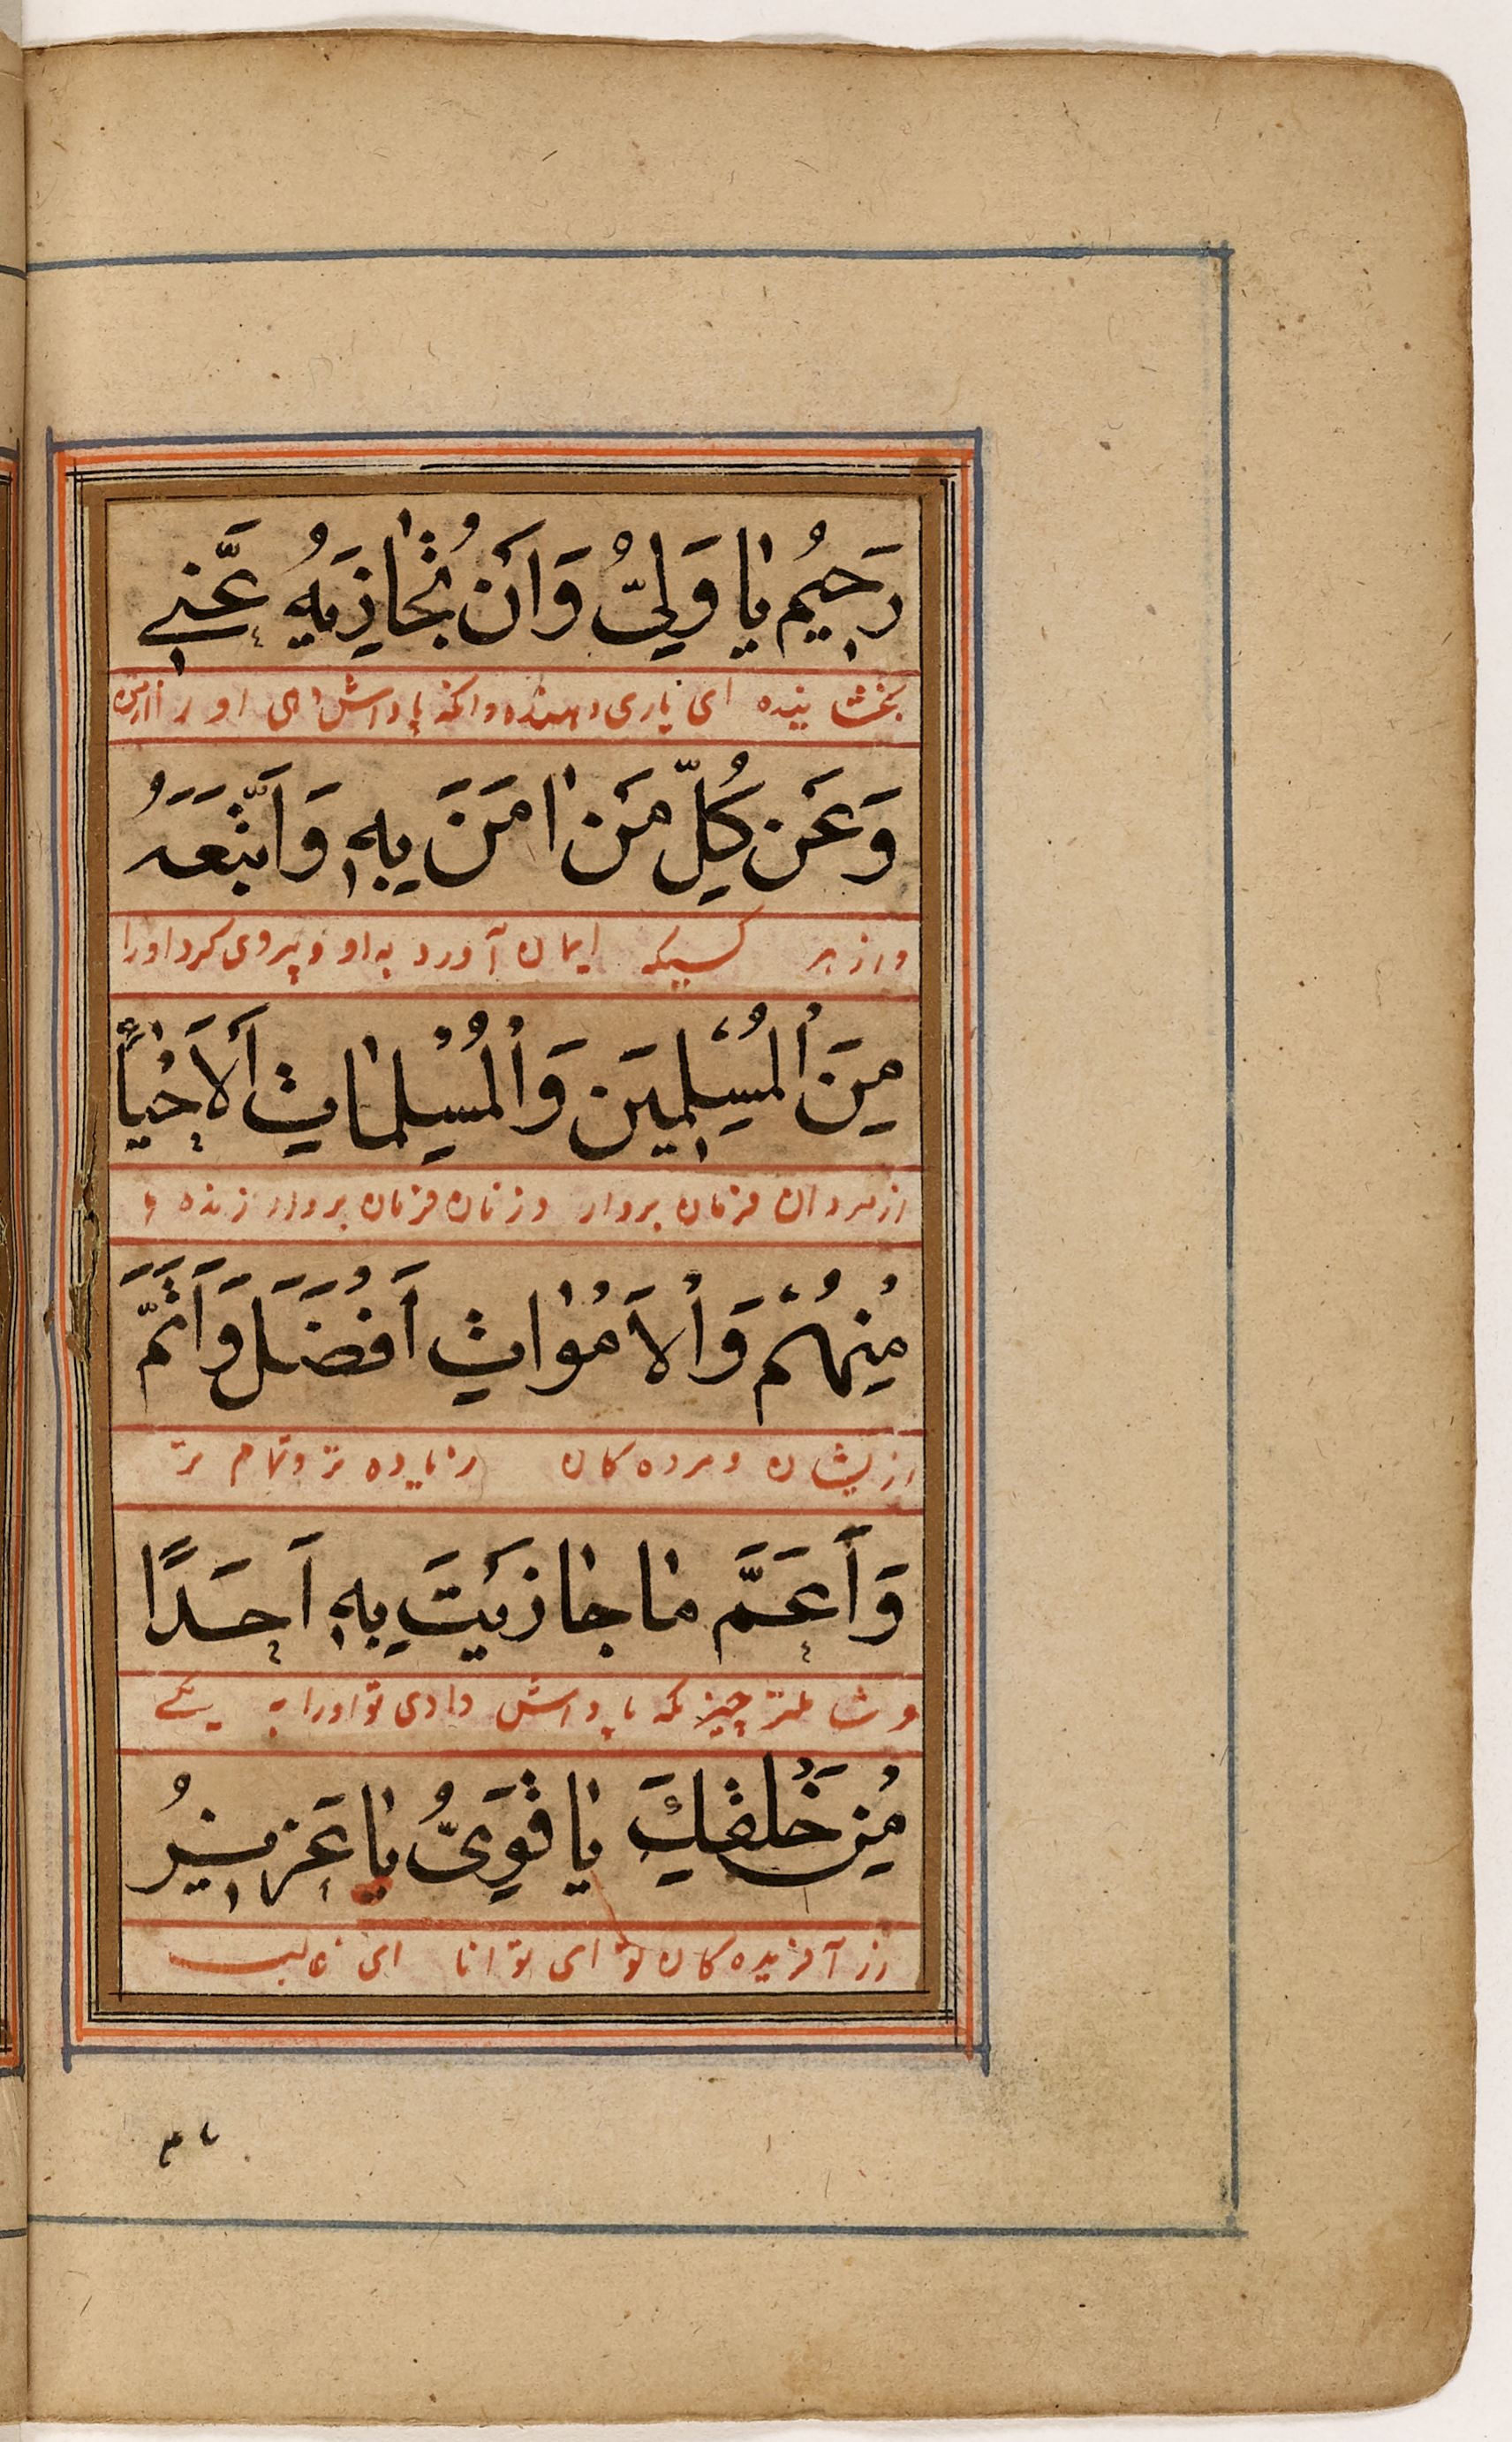 رَحِيمُ يٰا وَلِيُّ وَاَنْ تُجٰازِيَهُ عَنّٖي
بخشاينده اى يارى دهنده وانكه پاداش دهى اورا ازمن
وَعَنْ كُلِّ مَنْ اٰمَنَ بِهٖ وَاتَّبَعَهُ
وازهر كسيكه ايمان آورد به او و پيروى كرد اورا
مِنَ الْمُسْلِمٖينَ وَالْمُسْلِمٰاتِ اَلْاَحْيٰاءِ
ازمردان فرمان بردار وزنان فرمان بردار زنده ها
مِنْهُمْ وَالْاَمْوٰاتِ اَفْضَلَ وَاَتَمَّ
ازيشان ومرده كان تر وتمام تر
وَاَعَمَّ مٰا جٰازَيْتَ بِهٖ اَحَدًا
وشاملتر چيز كه پاداش دادى تو اورا به يكے
مِنْ خَلْقِكَ يٰا قَوِيُّ يٰا عَزٖيزُ
از آفريده كان تو اى توانا اى غالب